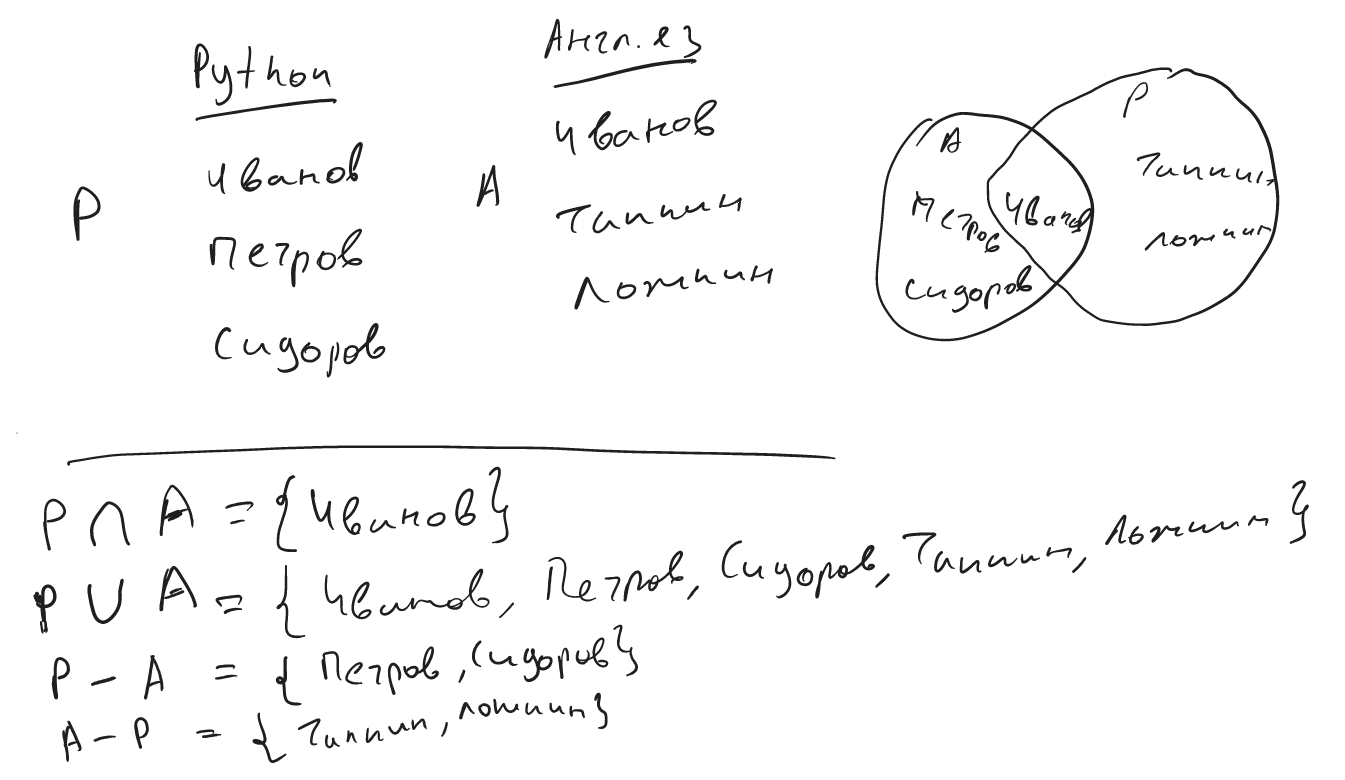 Python
Англ. яз
P
Иванов
Петров
Сидоров
A
Иванов
Тапкин
Ложкин
A
Петров
Сидоров
Иванов
P
Тапкин
Ложкин
P ∩ A = {Иванов}
P ∪ A = { Иванов, Петров, Сидоров, Тапкин, Ложкин }
P - A = { Петров, Сидоров}
A - P = { Тапкин, Ложкин}